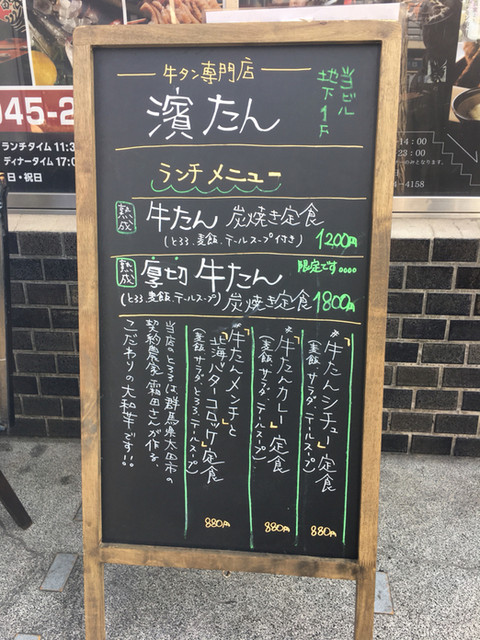 牛タン専門店
濱たん
当ビル
地下1F
ランチメニュー
熟成 牛たん 炭焼き定食
(とろろ、麦飯、テールスープ付き) 1200円
熟成 厚切 牛たん 限定です。。。。
(とろろ、麦飯、テールスープ) 炭焼き定食 1800円
※「牛たんシチュー」定食
(麦飯、サラダ、テールスープ)
880円
※「牛たんカレー」定食
(麦飯、サラダ、テールスープ)
880円
※「牛たんメンチ」と
「北海バターコロッケ」定食
(麦飯、サラダ、とろろ、テールスープ)
880円
当店のとろろは、群馬県太田市の
契約農家 霜田さんが作る、
こだわりの大和芋です!!
045-2
ランチタイム 11:3
ディナータイム 17:0
日・祝日
14:00
23:00
4-4158